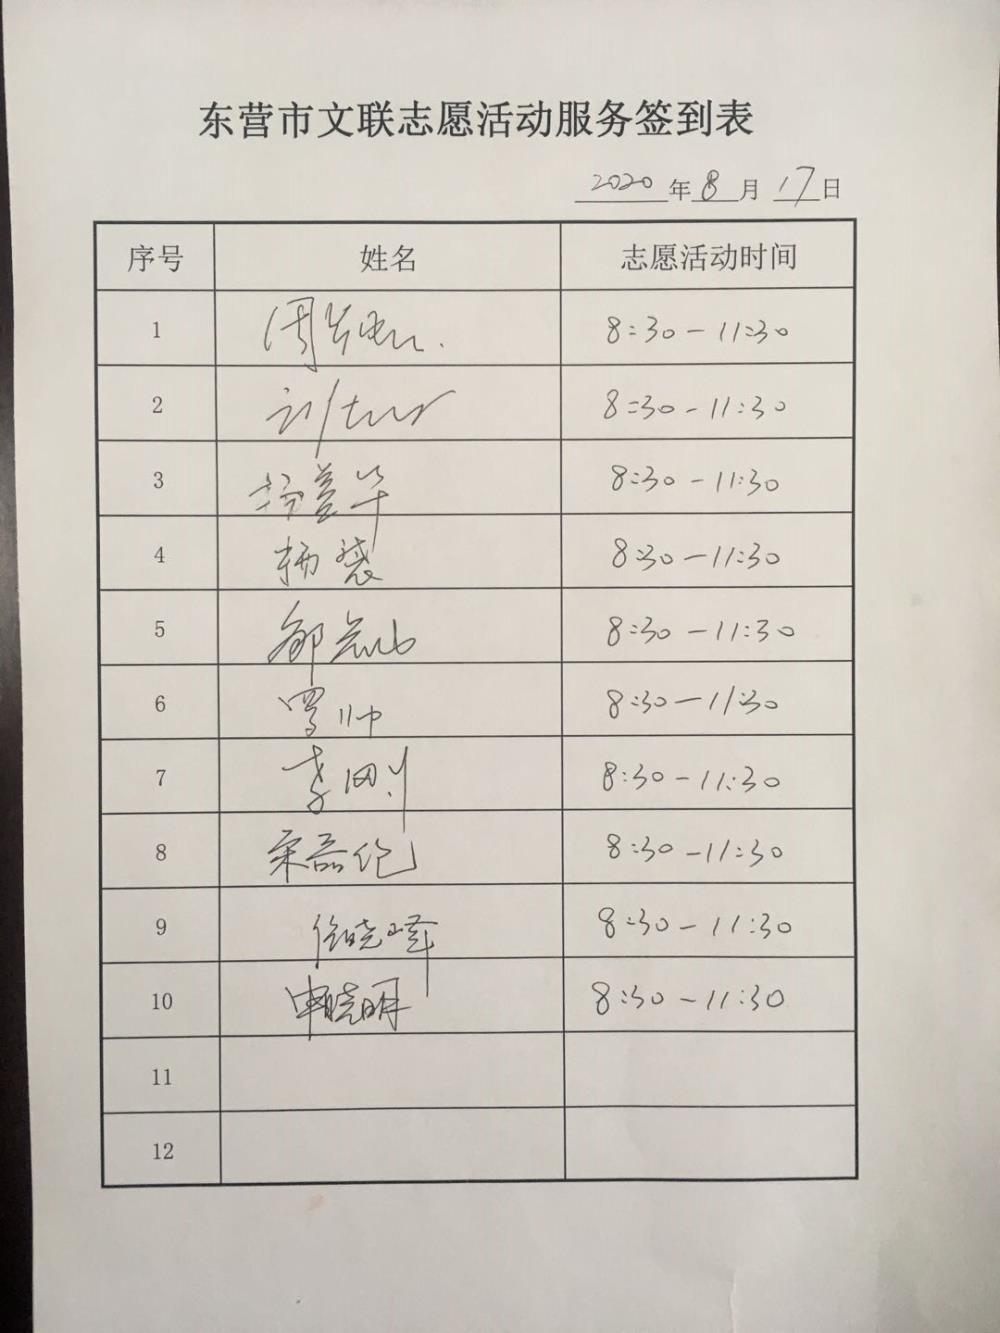 东营市文联志愿活动服务签到表
2020年8月17日
序号 姓名 志愿活动时间
1 8:30-11:30
2 8:30-11:30
3 杨萱华 8:30-11:30
4 杨袭 8:30-11:30
5 8:30-11:30
6 罗帅 8:30-11:30
7 李刚 8:30-11:30
8 宋磊伦 8:30-11:30
9 徐晓峰 8:30-11:30
10 申晓明 8:30-11:30
11
12